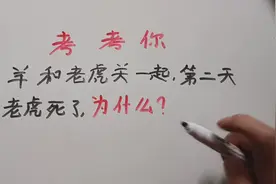 考考你
羊和老虎关一起,第二天
老虎死了,为什么?